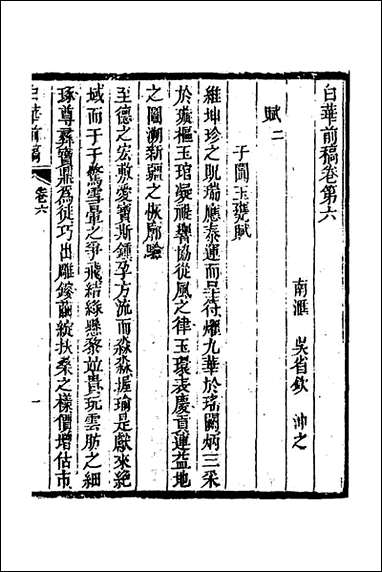 白華前稿卷第六
南滙 吳省欽 沖之
賦二
于闐玉甕賦
維坤珍之貺瑞應泰運而呈符燿九華於瑤闕炳三采
於璇樞玉琯凝禧響協從風之律玉環表慶貢運益地
之圖溯新疆之恢廓驗
至德之宏敷愛寶斯鍾孕方流而淼淼握瑜是獻來絕
域而于于驚雪暈之爭飛結綠懸黎竝貴玩雲肪之細
琢尊彝寶鼎為徒巧出雕鎪繭綻扶桑之樣價增估市
白華前稿 卷六 一